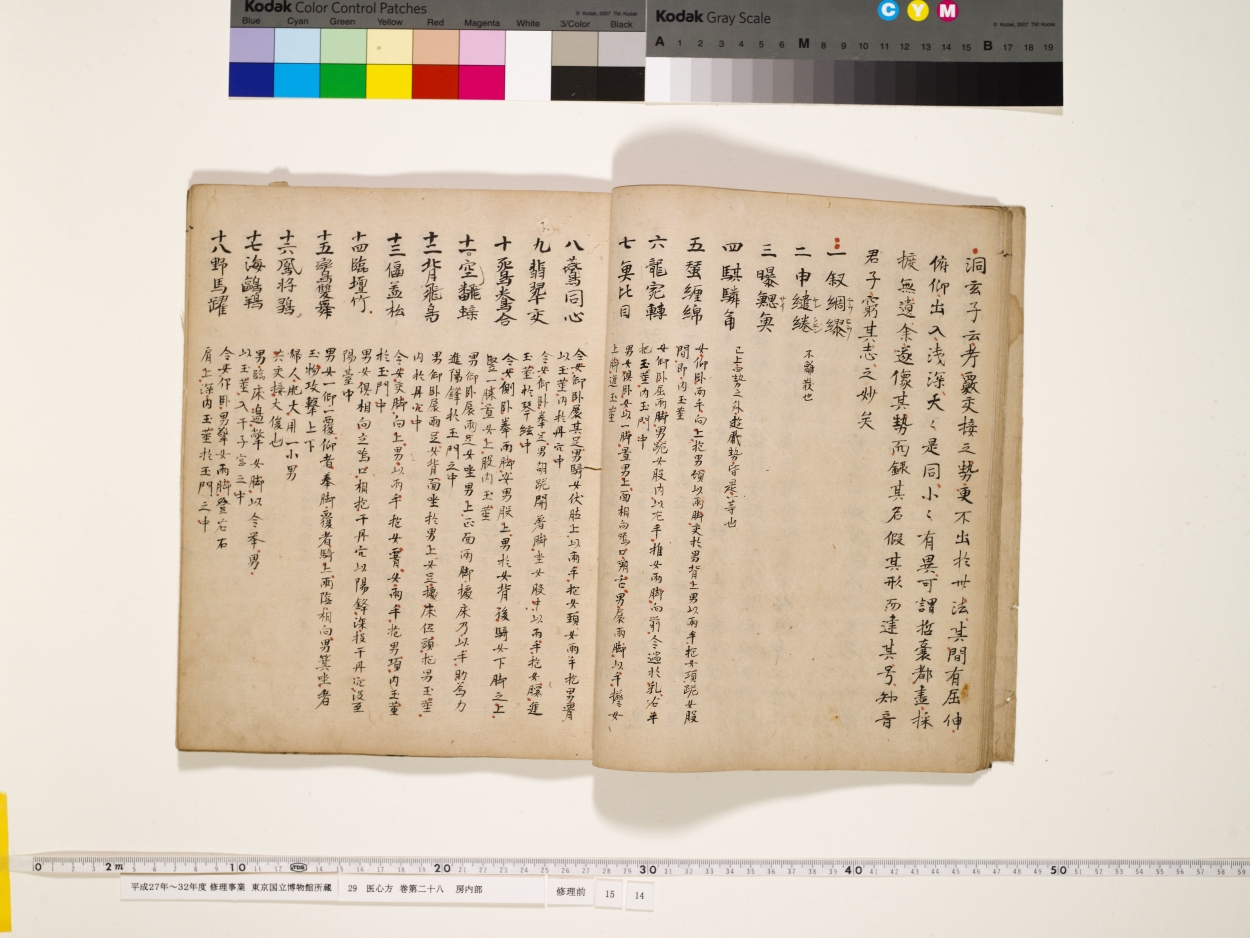 Kodak Color Control Patches
© Kodak, 2007 TM: Kodak
Blue Cyan Green Yellow Red Magenta White 3/Color Black
Kodak Gray Scale
C Y M
© Kodak, 2007 TM: Kodak
A 1 2 3 4 5 6 M 8 9 10 11 12 13 14 15 B 17 18 19
洞玄子云考覈交接之勢更不出於卅法其間有屈伸
俯仰出入浅深大〻是同小〻有異可謂括囊都盡採
摭無遺余遂像其勢而録其名假其形而建其号知音
君子窮其志之妙矣
一叙綢繆
二申繾綣 不離散也
三曝鰓魚
四騏驎角 已上四勢之外遊戯勢皆是一等也
五蚕纏綿 女仰卧兩手向上抱男頸以兩脚交於男背上男以兩手抱女項跪女股
間即内玉莖
六龍宛轉 女仰卧屈兩脚男跪女股内以左手推女兩脚向前令過於乳右手
把玉莖内玉門中
七魚比目 男女俱卧女以一脚置男上面相向嗚口嗍舌男展兩脚以手擔女
上脚進玉莖
八鷰同心 令女仰卧展其足男騎女伏肚上以兩手抱女頸女兩手抱男腰
以玉莖内於丹穴中
九翡翠交 令女仰卧拳足男胡跪開着脚坐女股中以兩手抱女腰進
玉莖於琴絃中
十鴛鴦合 令女側卧拳兩脚安男股上男於女背後騎女下脚之上
竪一膝置女上股内玉莖
十一空飜蝶 男仰卧展兩足女坐男上正面兩脚據床乃以手助為力
進陽鋒於玉門之中
十二背飛鳧 男仰卧展兩足女背面坐於男上女足據床低頭抱男玉莖
内於丹穴中
十三偃盖松 令女交脚向上男以兩手抱女腰女兩手抱男項内玉莖
於玉門中
十四臨壇竹 男女俱相向立嗚口相抱于丹穴以陽鋒深投于丹穴没至
陽臺中
十五鸞雙舞 男女一仰一覆仰者拳脚覆者騎上兩陰相向男箕坐着
玉物攻撃上下
十六鳳将鶵 婦人肥大用一小男
共交接大俊也
十七海鷗翔 男臨床邊擎女脚以令擧男
以玉莖入于子宮之中
十八野馬躍 令女仰卧男擎女兩脚登右左
肩上深内玉莖於玉門之中
0 2m 10 20 30 40 50
平成27年～32年度 修理事業 東京国立博物館所蔵 29 医心方 巻第二十八 房内部 修理前 15 14